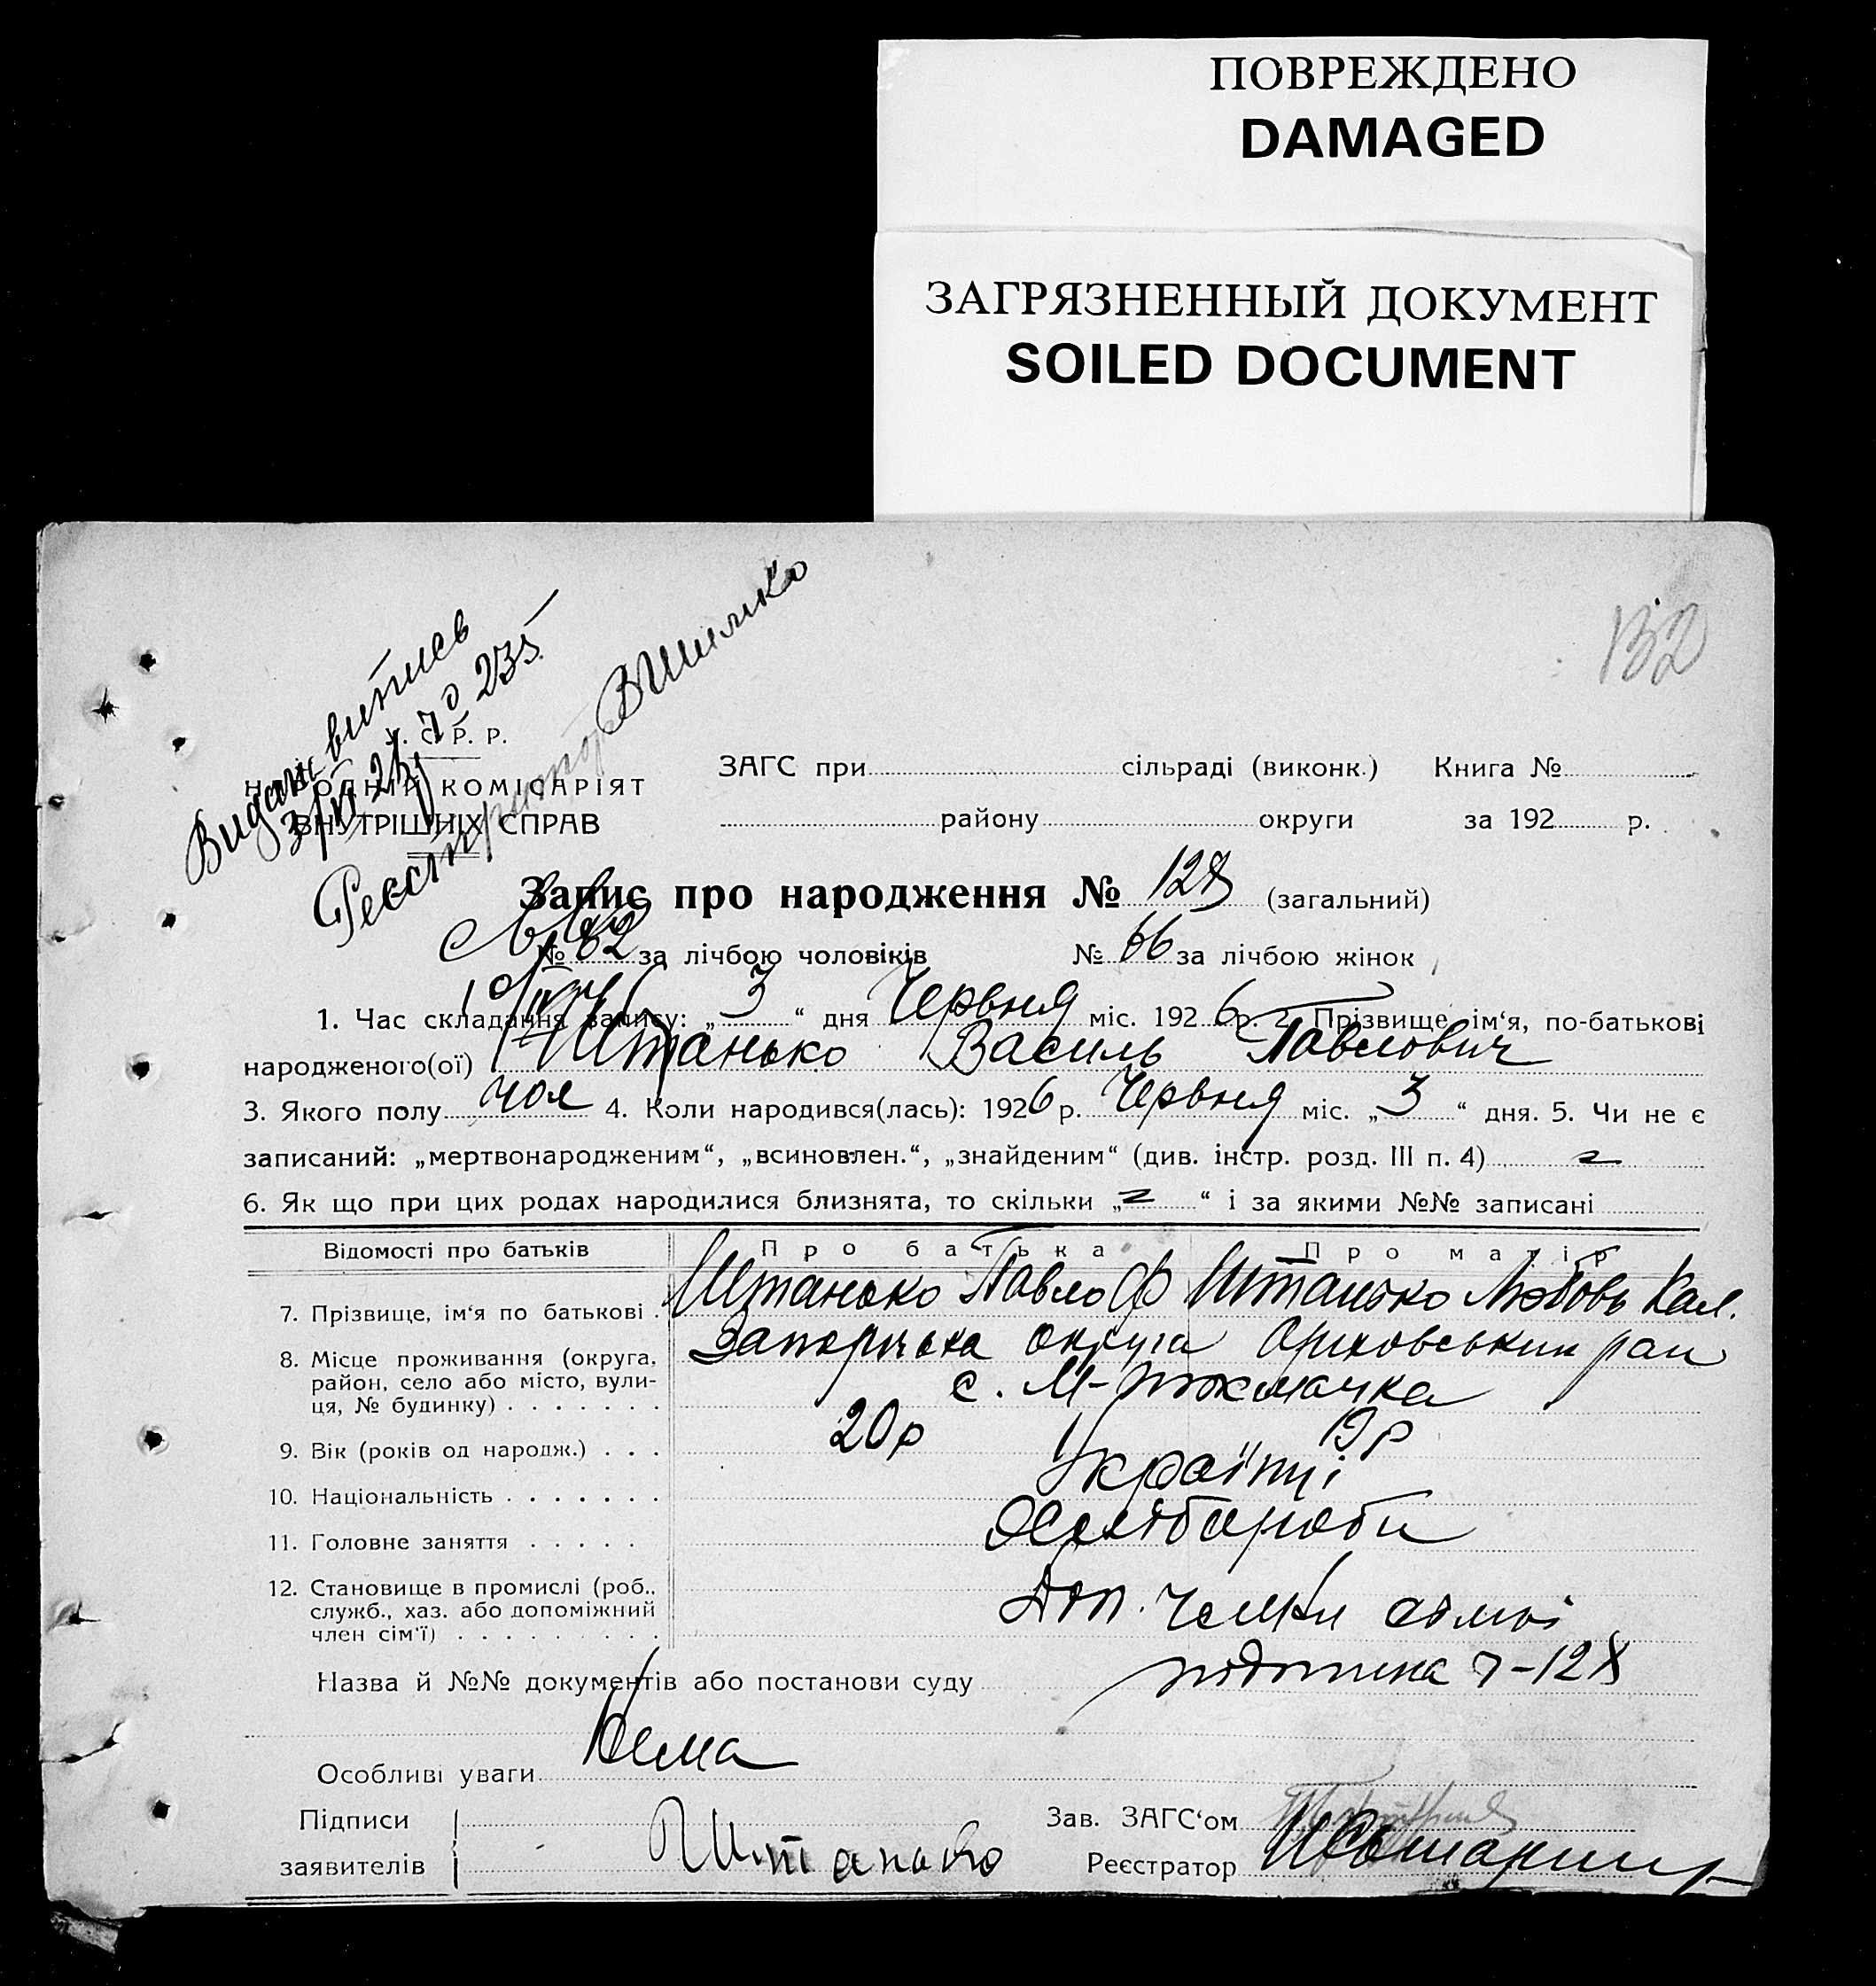 ПОВРЕЖДЕНО
DAMAGED
ЗАГРЯЗНЕННЫЙ ДОКУМЕНТ
SOILED DOCUMENT
132
витпись
235
Реєстратор
У. С. Р. Р.
НАРОДНІЙ КОМІСАРІЯТ
ВНУТРІШНІХ СПРАВ
ЗАГС при сільраді (виконк.) Книга №
району округи за 192 р.
Запис про народження № 128 (загальний)
№ 62 за лічбою чоловіків № 66 за лічбою жінок
1. Час складання запису: „ 3 “ дня Червня міс. 192 6 р. 2. Прізвище, ім‘я, по-батькові
народженого(ої) Штанько Василь Павлович
3. Якого полу чол 4. Коли народився(лась): 1926 р. Червня міс. „ 3 “ дня. 5. Чи не є
записаний: „мертвонародженим“, „всиновлен.“, „знайденим“ (див. інстр. розд. III п. 4)
6. Як що при цих родах народилися близнята, то скільки „ “ і за якими №№ записані
Відомості про батьків Про батька Про матір
7. Прізвище, ім‘я по батькові . Штанько Павло Ф Штанько Любовь Кал.
8. Місце проживання (округа, район, село або місто, вулиця, № будинку) . . . . . . . Запорізька округа Оріховський рай
с. М-Токмачка
9. Вік (років од народж.) . . . 20р 19р
10. Національність . . . . . . . Українці
11. Головне заняття . . . . . Хлібороби
12. Становище в промислі (роб., служб., хаз. або допоміжний член сім‘ї) . . . . . . . . . Доп. члени сімьі
Назва й №№ документів або постанови суду 7-128
Особливі уваги Нема
Підписи
заявителів П Штанько
Зав. ЗАГС‘ом
Реєстратор